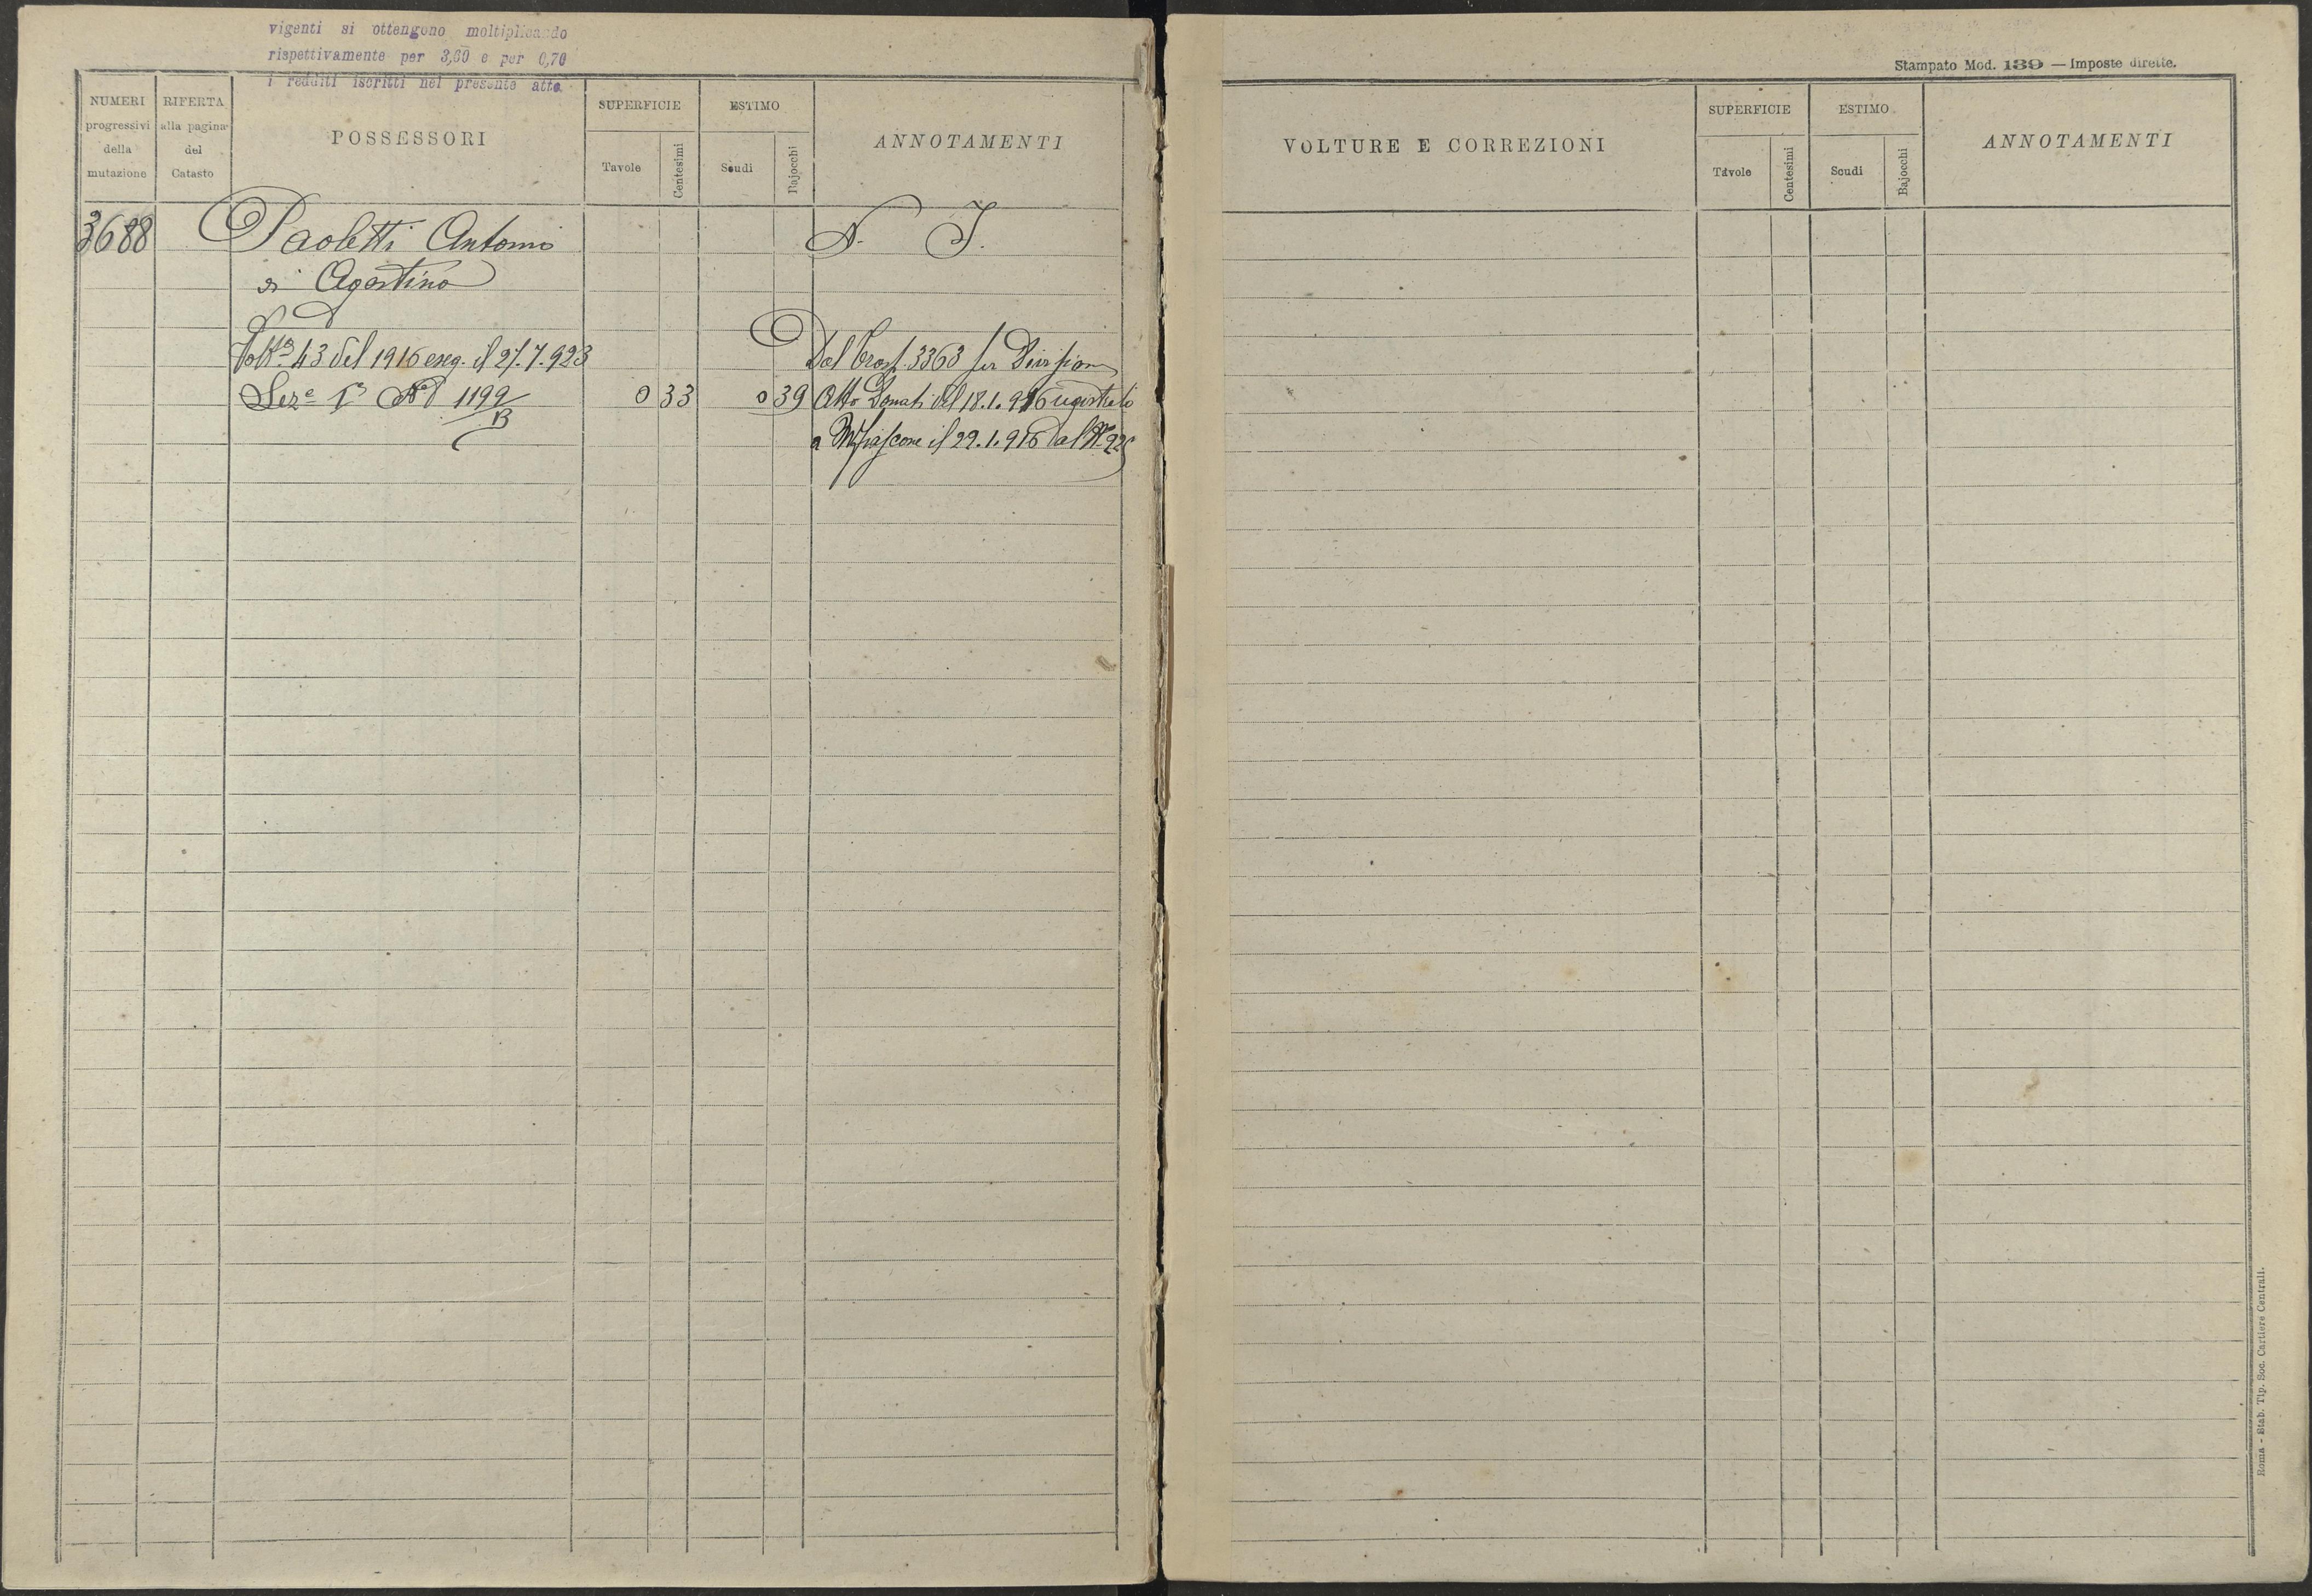 vigenti si ottengono moltiplicando
rispettivamente per 3,60 e per 0,70
i redditi iscritti nel presente atto.
NUMERI progressivi della mutazione
RIFERTA alla pagina del Catasto
POSSESSORI
SUPERFICIE
Tavole
Centesimi
ESTIMO
Scudi
Bajocchi
ANNOTAMENTI
3688
Paoletti Antonio
di Agostino
N. I.
Voltª 43 del 1916 eseg. il 27.7.923
Dal Trasp. 3363 per Divisione
Sezᵉ 1ª Nº 1199/B
0 33
0 39
Atto Donati del 18.1.916 registrato
a Mfiascone il 22.1.916 al Nº
Stampato Mod. 139 — Imposte dirette.
VOLTURE E CORREZIONI
SUPERFICIE
Tavole
Centesimi
ESTIMO
Scudi
Bajocchi
ANNOTAMENTI
Roma - Stab. Tip. Soc. Cartiere Centrali.